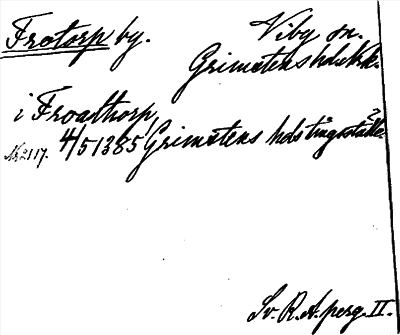 Frotorp by. Viby sn.
Grimstens hd. Ark.
i Froathorp,
Nr 2117. 4/5 1385 Grimstens hds tingsställe?
Sv. R. A. perg. II.